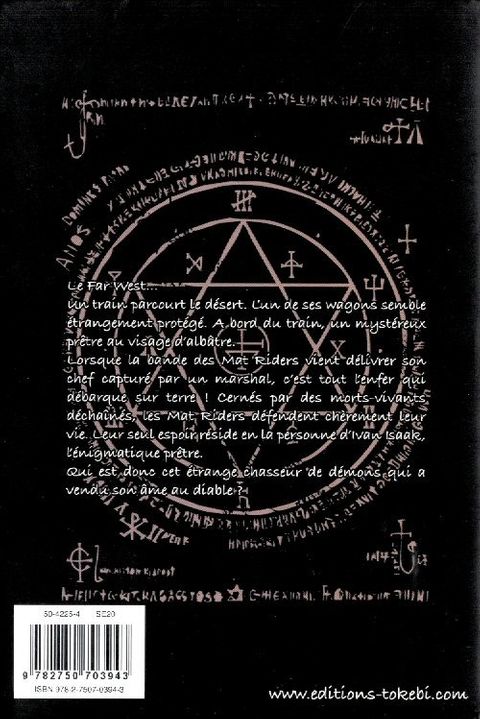 DOMINUS
AMOS
Le Far West...
Un train parcourt le désert. L'un de ses wagons semble
étrangement protégé. A bord du train, un mystéreux
prêtre au visage d'albâtre.
Lorsque la bande des Mat Riders vient délivrer son
chef capturé par un marshal, c'est tout l'enfer qui
débarque sur terre ! Cernés par des morts-vivants
déchaînés, les Mat Riders défendent chèrement leur
vie. Leur seul espoir réside en la personne d'Ivan Isaak,
l'énigmatique prêtre.
Qui est donc cet étrange chasseur de démons qui a
vendu son âme au diable ?
50-4225-4 SE20
9 782750 703943
ISBN 978-2-7507-0394-3
www.editions-tokebi.com